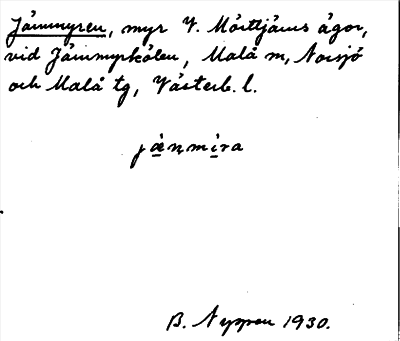 Jänmyren, myr V. Mörttjärns ägor,
vid Jänmyrkölen, Malå sn, Norsjö
och Malå tg, Västerb. l.
jänmira
B. Nyssen 1930.